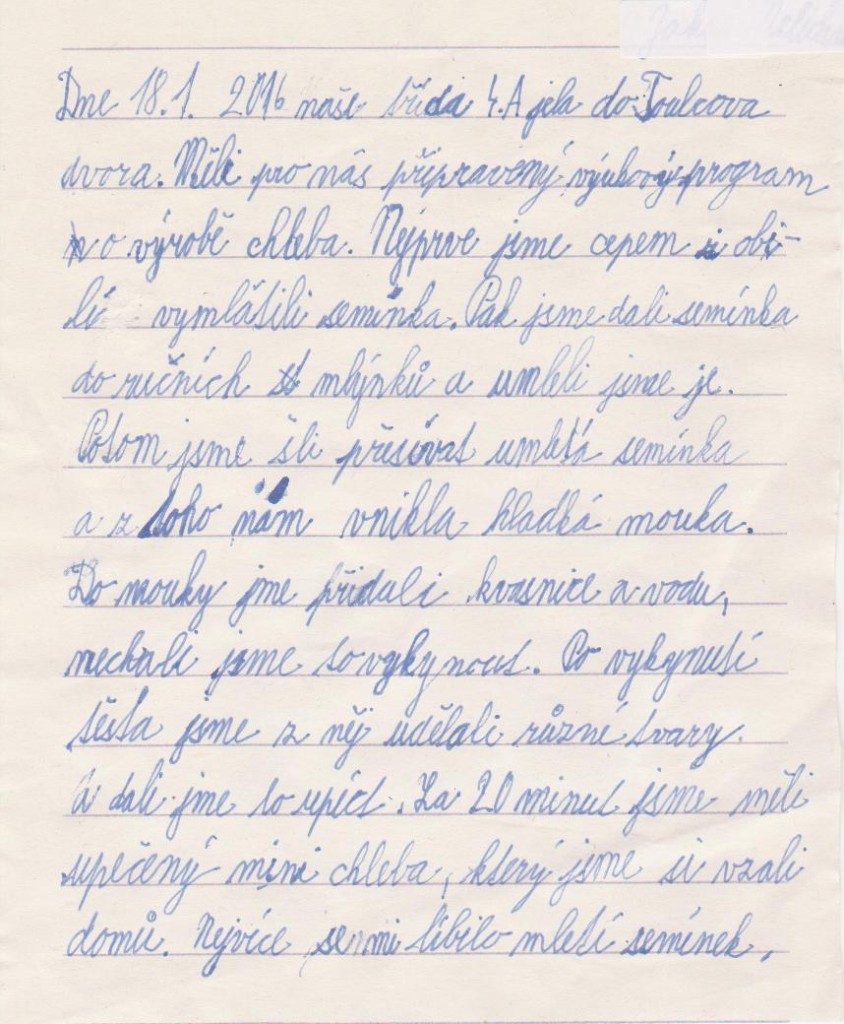 Dne 18.1. 2016 naše třída 4.A jela do Toulcova
dvora. Měli pro nás připravený výukový program
o výrobě chleba. Nejprve jsme cepem z obi-
lí vymlátili semínka. Pak jsme dali semínka
do ručních mlýnků a umleli jsme je.
Potom jsme šli přesívat umletá semínka
a z toho nám vnikla hladká mouka.
Do mouky jme přidali kvasnice a vodu,
nechali jsme to vykynout. Po vykynutí
těsta jsme z něj udělali různé tvary.
A dali jme to upéct. Za 20 minut jsme měli
upečený mini chleba, který jsme si vzali
domů. Nejvíce se mi líbilo mletí semínek.